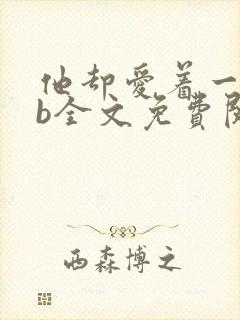 他却愛着一
b全文免費閱
西森博之